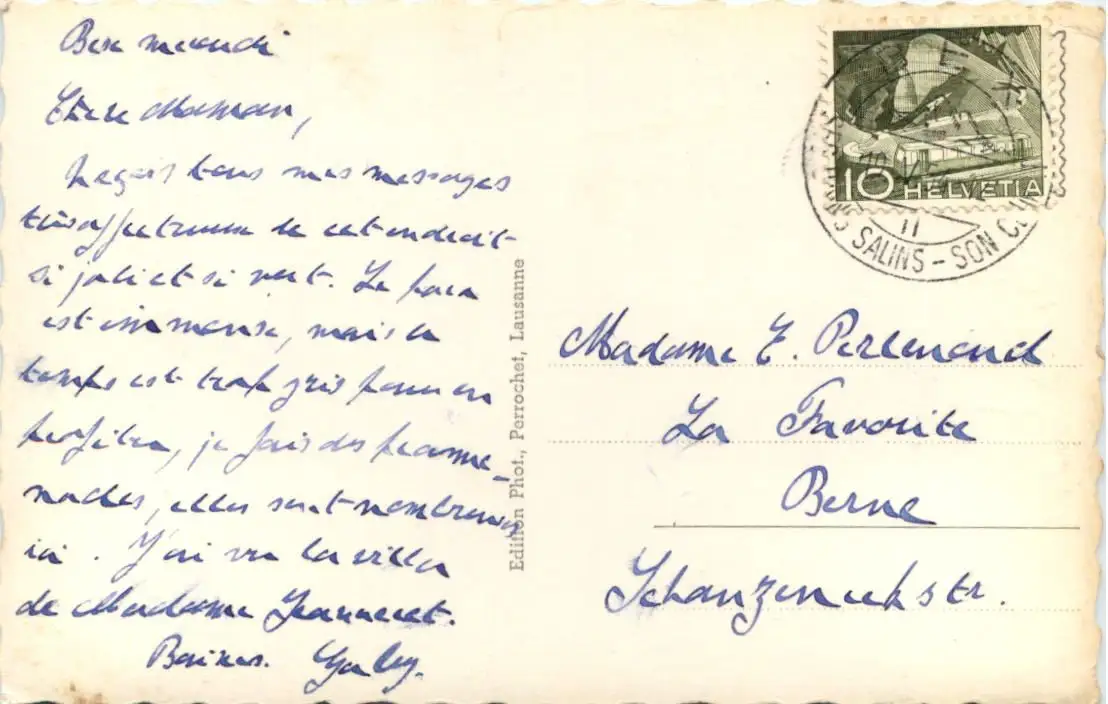 Bex mercredi
Chère Maman,
Reçois tous mes messages
très affectueux de cet endroit
si joli et si vert. Le parc
est immense, mais le
temps est trop gris pour en
profiter, je fais des prome-
nades, elles sont nombreuses
ici. J'ai vu la villa
de Madame Jeanneret.
Baisers. Gaby.
Edition Phot., Perrochet, Lausanne
10 HELVETIA
BEX
SALINS - SON
Madame E.
La Favorite
Berne
Schanzeneckstr.